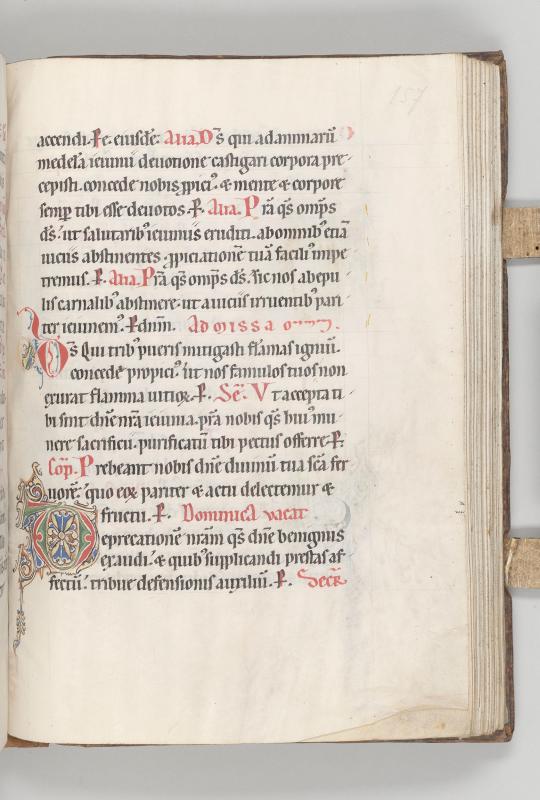 157
accendi. P̶ e. eiusdē. Alia. D̄s qui ad animarū
medelā ieiunii deuotione castigari corpora pre-
cepisti. concede nobis ꝓpici⁹. & mente & corpore
semꝑ tibi esse deuotos. P̶. Alia. Prā q̄s omp̄s
d̄s. ut salutarib⁹ ieiuniis eruditi. a bomnib⁹ etiā
uiciis abstinentes. ꝓpiciationē tuā facili⁹ impe-
tremus. P̶. Alia. Prā q̄s omp̄s d̄s. sic nos ab epu-
lis carnalib⁹ abstinere. ut a uiciis irruentib⁹ pari-
ter ieiunem⁹. P̶ dnm̄. Ad missā
D̄s qui trib⁹ pueris mitigasti flāmas igniū.
concede propici⁹. ut nos famulos tuos non
exurat flamma uitioꝝ. P̶. Sec̄. Ut accepta ti-
bi sint dn̄e nr̄a ieiunia. prā nobis q̄s hui⁹ mu-
nere sacrificii. purificatū tibi pectus offerre. P̶.
Cōp. Prebeant nobis dn̄e diuinū tua sc̄a fer-
uorē. quo eoꝝ pariter & actu delectemur &
fructu. P̶. Dominica vacat
Deprecationē nr̄am q̄s dn̄e benignus
exaudi. & quib⁹ supplicandi prestas af-
fectū. tribue defensionis auxiliū. P̶. Secr̄